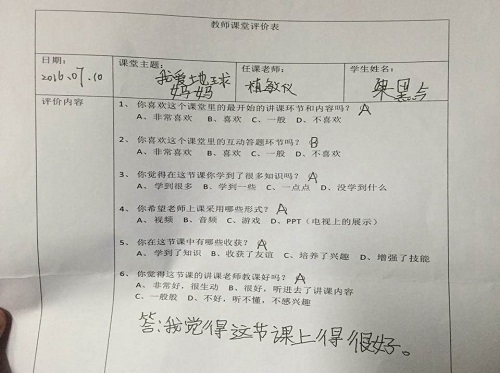 教师课堂评价表
日期: 课堂主题: 任课老师: 学生姓名:
2016.07.10 我爱地球妈妈 植敏仪
评价内容
1、你喜欢这个课堂里的最开始的讲课环节和内容吗? A
A、非常喜欢 B、喜欢 C、一般 D、不喜欢
2、你喜欢这个课堂里的互动答题环节吗? B
A、非常喜欢 B、喜欢 C、一般 D、不喜欢
3、你觉得在这节课你学到了很多知识吗? A
A、学到很多 B、学到一些 C、一点点 D、没学到什么
4、你希望老师上课采用哪些形式? A
A、视频 B、音频 C、游戏 D、PPT(电视上的展示)
5、你在这节课中有哪些收获? A
A、学到了知识 B、收获了友谊 C、培养了兴趣 D、增强了技能
6、你觉得这节课的讲课老师教课好吗? A
A、非常好，很生动 B、很好，听进去了讲课内容
C、一般般 D、不好，听不懂，不感兴趣
答:我觉得这节课上得很好。